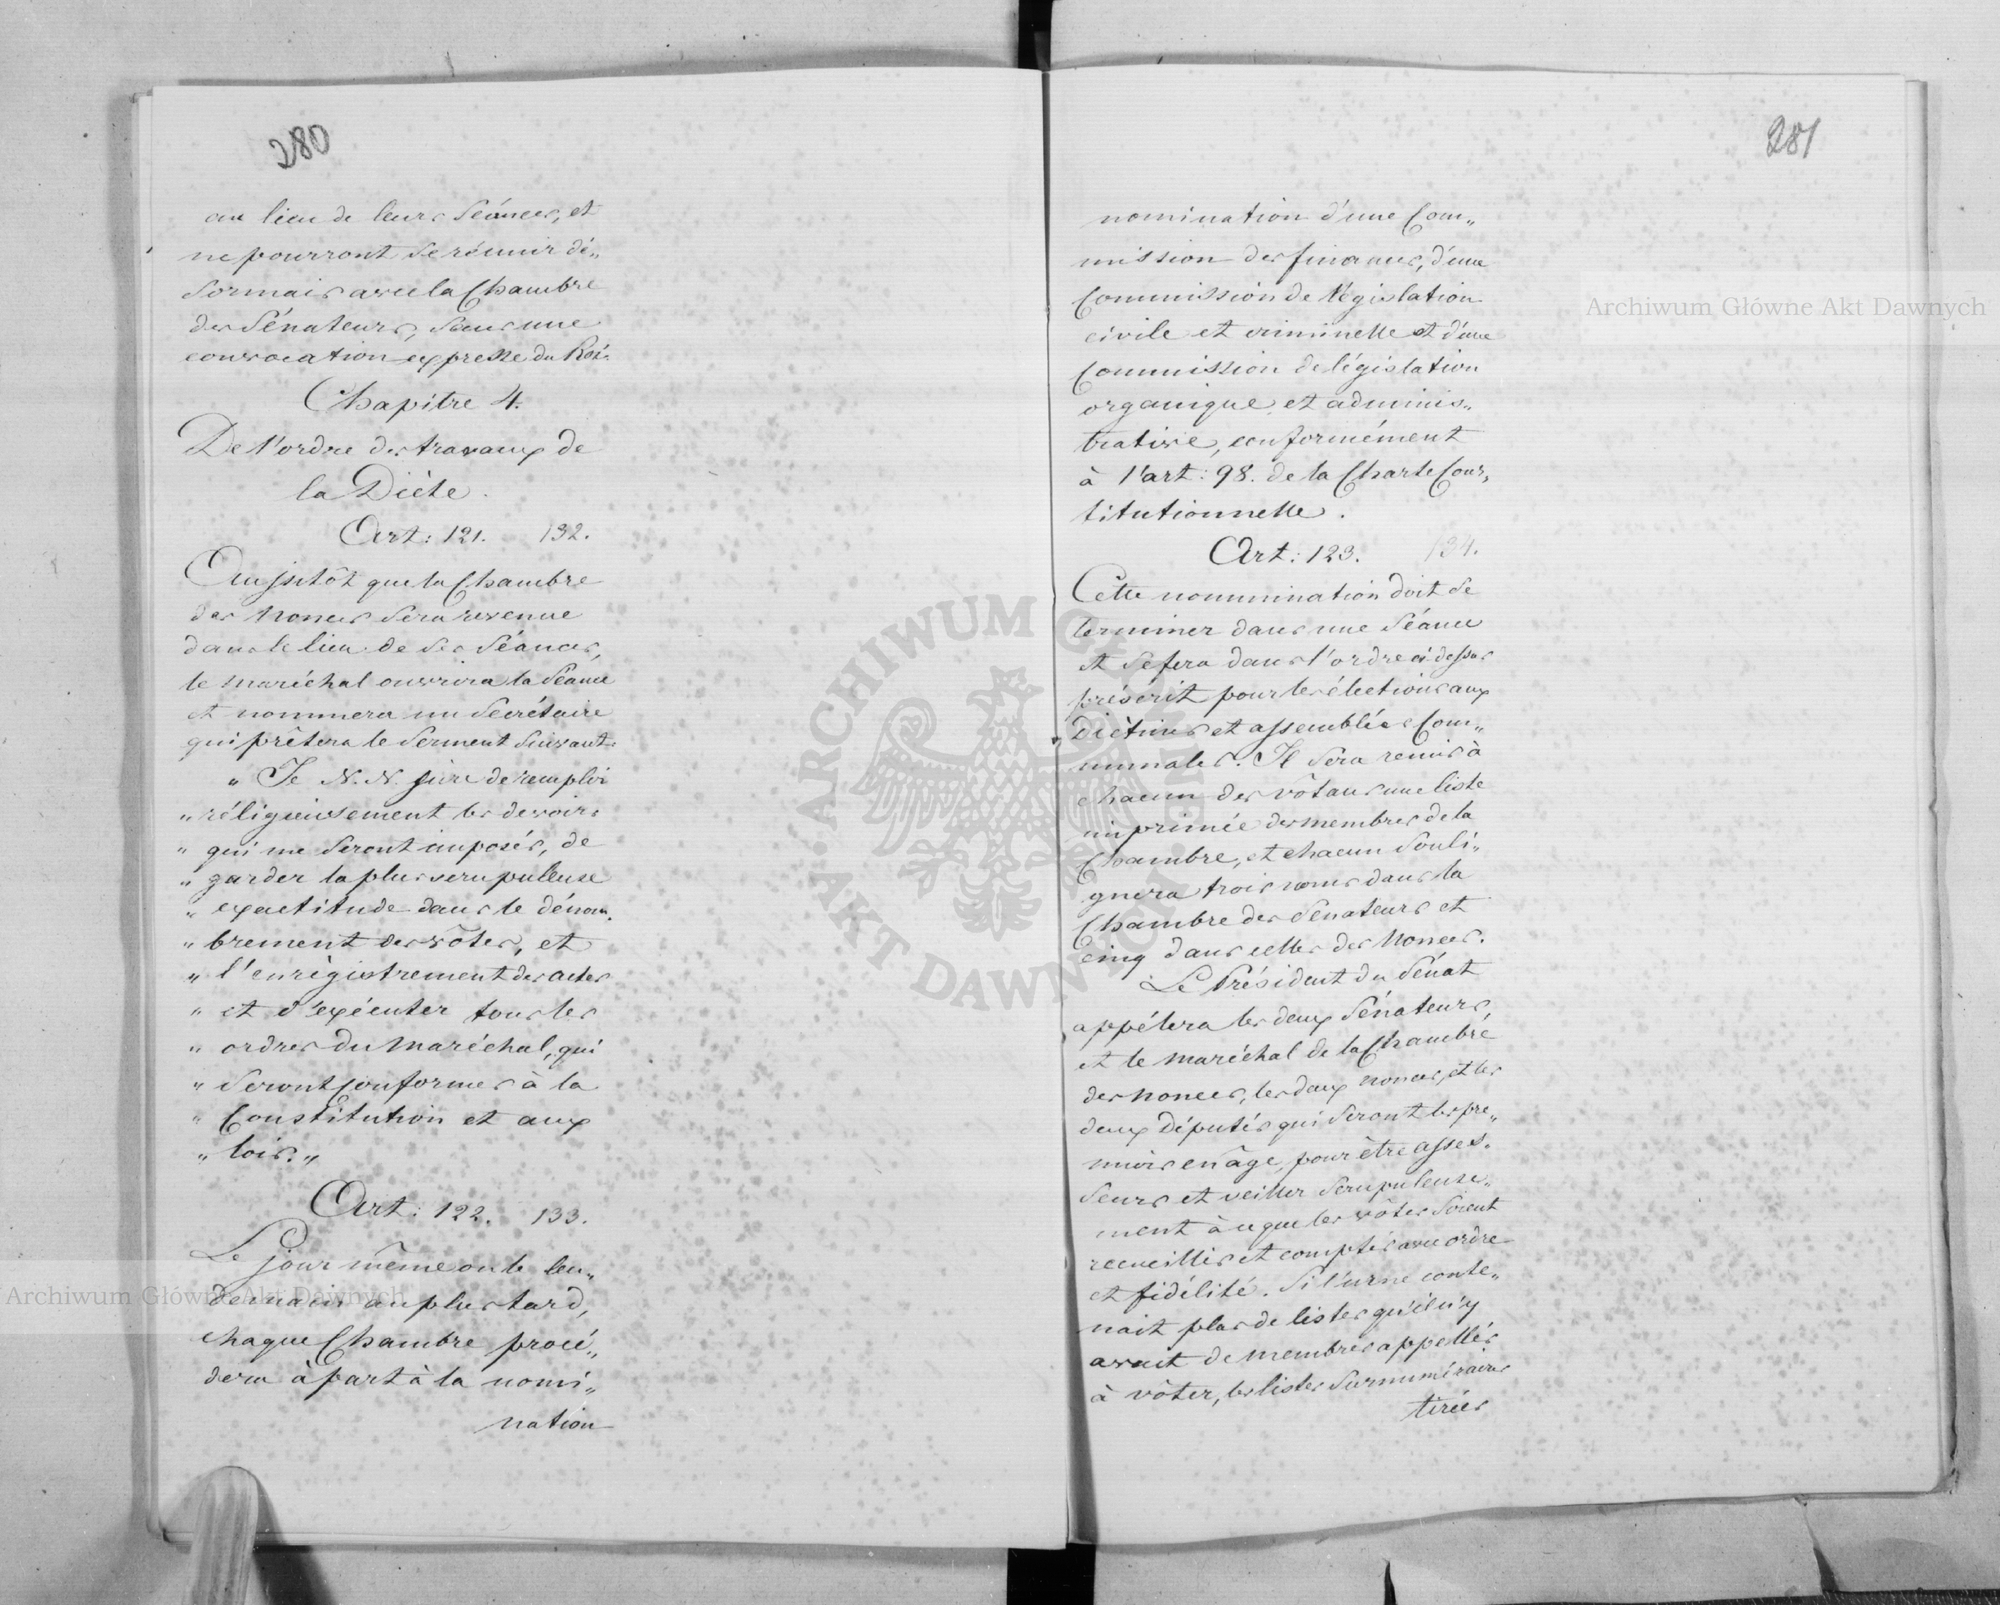 280
au lieu de leurs Séances, et
ne pourront se réunir dé„
sormais avec la Chambre
des Sénateurs, sans une
convocation expresse du Roi.
Chapitre 4.
De l'ordre des travaux de
la Diète.
Art: 121. 132.
Aussitôt que la Chambre
des Nonces sera revenue
dans le lieu de ses Séances,
le Maréchal ouvrira la Séance
et nommera un Secrétaire
qui prêtera le Serment Suivant:
„ Je N. N. jure de remplir
„ réligieusement les devoirs
„ qui me seront imposés, de
„ garder la plus scrupuleuse
„ exactitude dans le dénom„
„ brement des vôtes, et
„ l'enrégistrement des actes
„ et d'exécuter tous les
„ ordres du Maréchal, qui
„ seront conformes à la
„ Constitution et aux
„ lois. „
Art: 122. 133.
Le jour même ou le len„
demain au plus tard,
chaque Chambre procé„
dera à part à la nomi„
nation
281
nomination d'une Com„
mission des finances, d'une
Commission de législation
civile et criminelle et d'une
Commission de législation
organique et adminis„
trative, conformément
à l'art: 98. de la Charte Cons„
titutionnelle.
Art: 123. 134.
Cette nommination doit se
terminer dans une Séance
et se fera dans l'ordre ci dessus
préscrit pour les élections aux
Diètines et assemblées Com„
munales. Il sera remis à
chacun des vôtans une liste
imprimée des membres de la
Chambre, et chacun souli„
gnera trois noms dans la
Chambre des Sénateurs et
cinq dans celle des Nonces.
Le Président du Sénat
appélera les deux Sénateurs,
et le Maréchal de la Chambre
des Nonces, les deux nonces, et les
deux Députés qui seront les pre„
miers en âge, pour être asses„
seurs et veiller scrupuleuse„
ment à ce que les vôtes soient
recueillis et comptés avec ordre
et fidélité. Si l'urne conte„
nait plus de listes qu'il n'y
avait de membres appellés
à vôter, les listes surnuméraires
tirées
Archiwum Główne Akt Dawnych
Archiwum Główne Akt Dawnych
ARCHIWUM GŁÓWNE AKT DAWNYCH